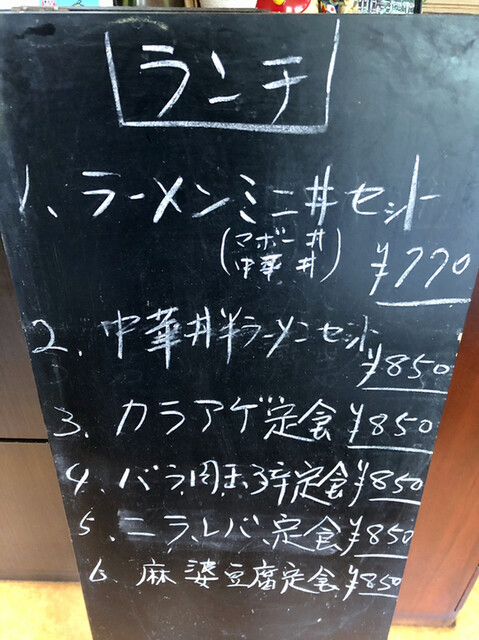 ランチ
1、ラーメンミニ丼セット
(マボー丼
中華丼)
¥770
2、中華丼半ラーメンセット
¥850
3、カラアゲ定食 ¥850
4、バラ肉玉子定食 ¥850
5、ニラレバ定食 ¥850
6、麻婆豆腐定食 ¥850